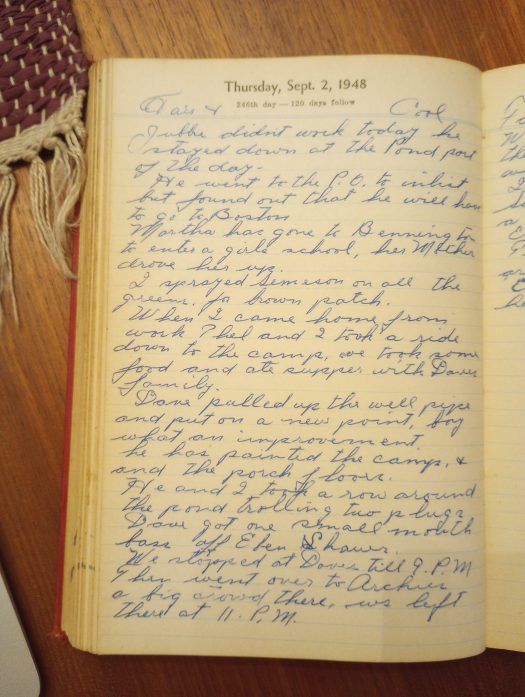 Thursday, Sept. 2, 1948
246th day — 120 days follow
Fair & Cool
Jubbe didnt work today he
stayed down at the Pond part
of the day.
He went to the P.O. to inlist
but found out that he will have
to go to Boston
Martha has gone to Bennington
to enter a girls school, her Mother
drove her up.
I sprayed Semeson on all the
greens, for brown patch.
When I came home from
work Phel and I took a ride
down to the camp, we took some
food and ate supper with Daves
family.
Dave pulled up the well pipe
and put on a new point, boy
what an improvement.
he has painted the camp, &
and the porch floors.
He and I took a row around
the pond trolling two plugs
Dave got one small mouth
bass off Eben Shaws.
We stopped at Daves till 9. P.M
Then went over to Archies
a big crowd there, we left
there at 11. P.M.